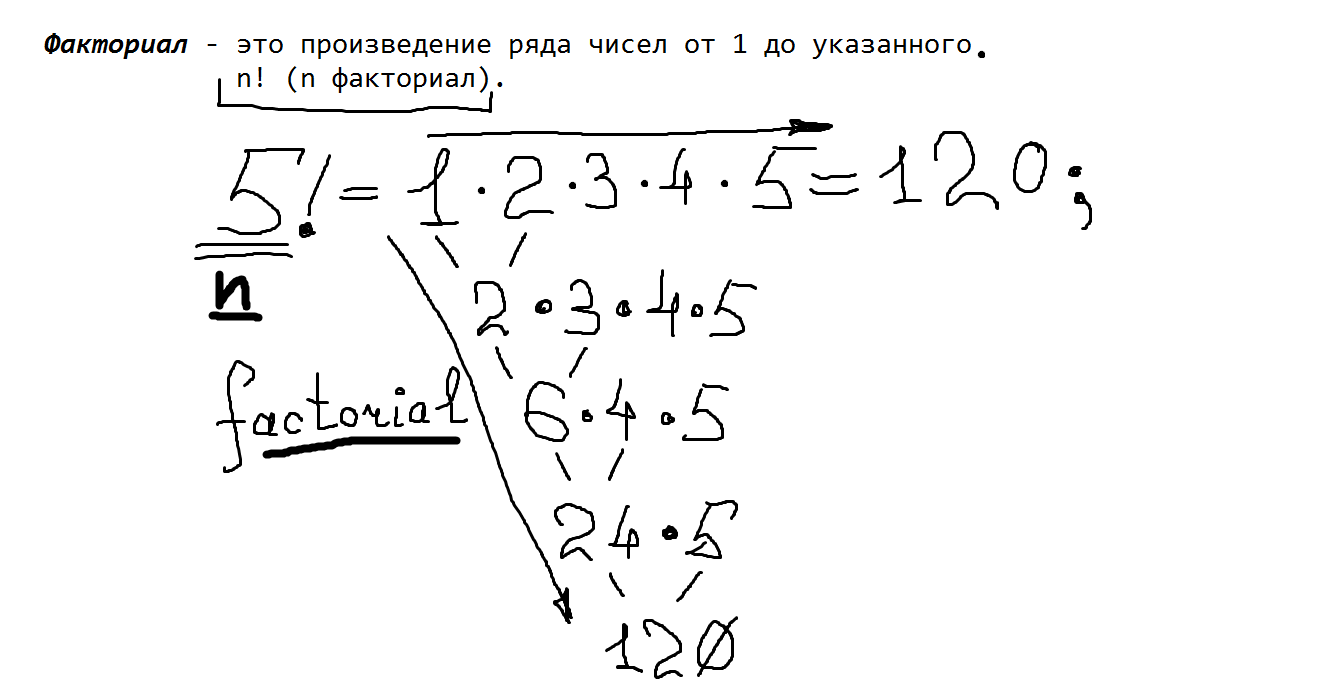 Факториал - это произведение ряда чисел от 1 до указанного.
n! (n факториал).
5! = 1 · 2 · 3 · 4 · 5 = 120 ;
n
2 · 3 · 4 · 5
factorial
6 · 4 · 5
24 · 5
120